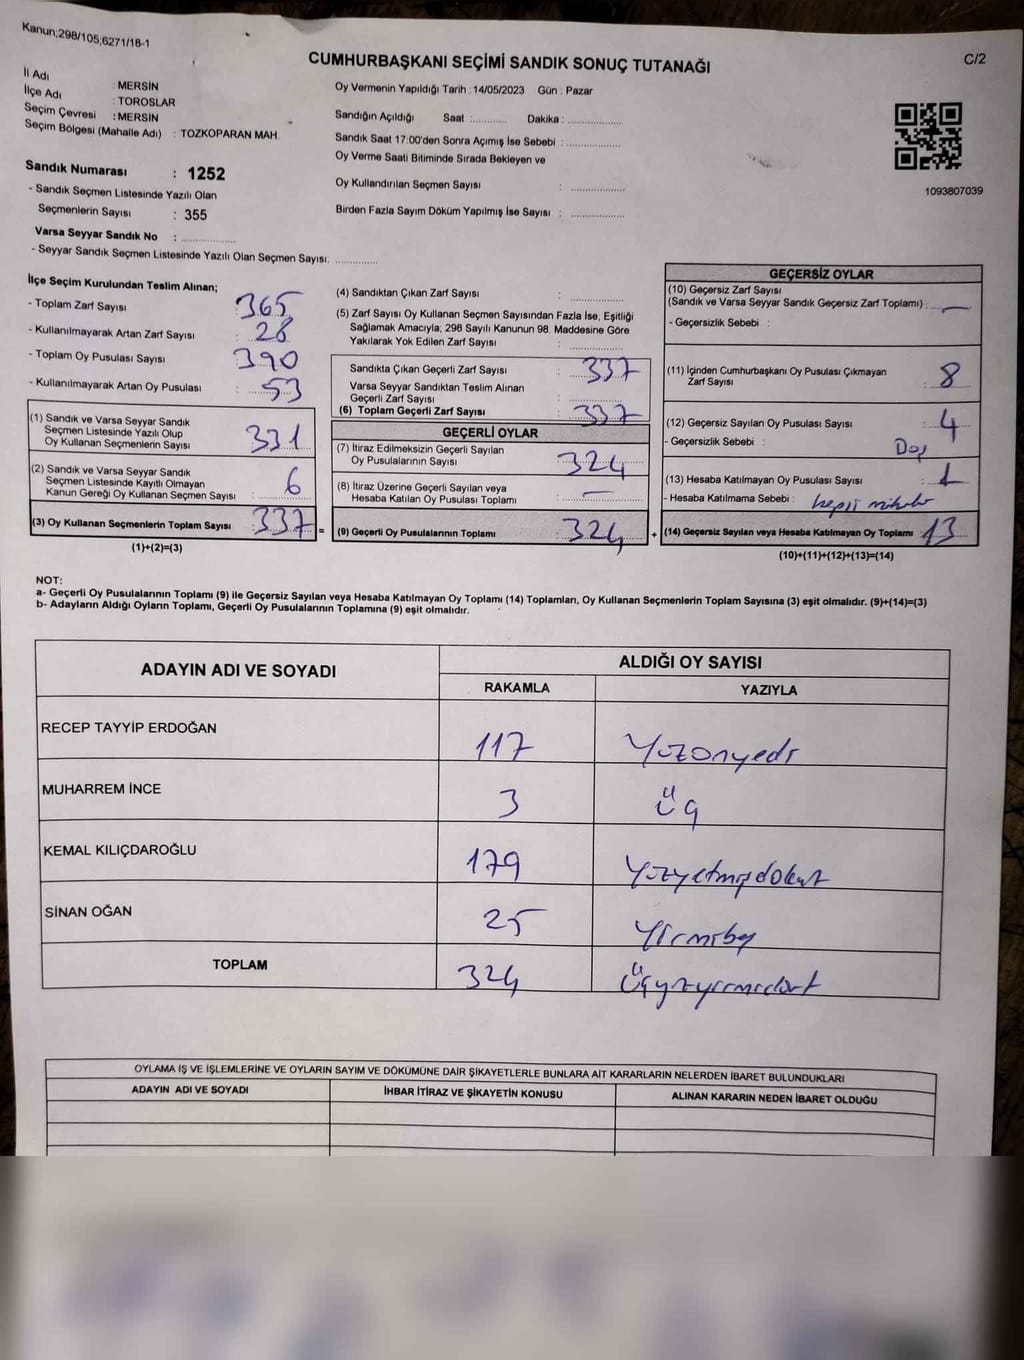 Kanun;298/105;6271/18-1
C/2
CUMHURBAŞKANI SEÇİMİ SANDIK SONUÇ TUTANAĞI
İl Adı : MERSİN
İlçe Adı : TOROSLAR
Seçim Çevresi : MERSİN
Seçim Bölgesi (Mahalle Adı) : TOZKOPARAN MAH.
Sandık Numarası : 1252
- Sandık Seçmen Listesinde Yazılı Olan
Seçmenlerin Sayısı : 355
Varsa Seyyar Sandık No :
- Seyyar Sandık Seçmen Listesinde Yazılı Olan Seçmen Sayısı:
Oy Vermenin Yapıldığı Tarih : 14/05/2023 Gün : Pazar
Sandığın Açıldığı Saat : Dakika :
Sandık Saat 17:00'den Sonra Açımış İse Sebebi :
Oy Verme Saati Bitiminde Sırada Bekleyen ve
Oy Kullandırılan Seçmen Sayısı :
Birden Fazla Sayım Döküm Yapılmış İse Sayısı :
1093807039
İlçe Seçim Kurulundan Teslim Alınan;
- Toplam Zarf Sayısı : 365
- Kullanılmayarak Artan Zarf Sayısı : 28
- Toplam Oy Pusulası Sayısı : 390
- Kullanılmayarak Artan Oy Pusulası : 53
(1) Sandık ve Varsa Seyyar Sandık
Seçmen Listesinde Yazılı Olup
Oy Kullanan Seçmenlerin Sayısı : 331
(2) Sandık ve Varsa Seyyar Sandık
Seçmen Listesinde Kayıtlı Olmayan
Kanun Gereği Oy Kullanan Seçmen Sayısı : 6
(3) Oy Kullanan Seçmenlerin Toplam Sayısı : 337 =
(1)+(2)=(3)
(4) Sandıktan Çıkan Zarf Sayısı :
(5) Zarf Sayısı Oy Kullanan Seçmen Sayısından Fazla İse, Eşitliği
Sağlamak Amacıyla; 298 Sayılı Kanunun 98. Maddesine Göre
Yakılarak Yok Edilen Zarf Sayısı :
Sandıkta Çıkan Geçerli Zarf Sayısı : 337
Varsa Seyyar Sandıktan Teslim Alınan
Geçerli Zarf Sayısı :
(6) Toplam Geçerli Zarf Sayısı : 337
GEÇERLİ OYLAR
(7) İtiraz Edilmeksizin Geçerli Sayılan
Oy Pusulalarının Sayısı : 324
(8) İtiraz Üzerine Geçerli Sayılan veya
Hesaba Katılan Oy Pusulası Toplamı : —
(9) Geçerli Oy Pusulalarının Toplamı : 324 +
GEÇERSİZ OYLAR
(10) Geçersiz Zarf Sayısı
(Sandık ve Varsa Seyyar Sandık Geçersiz Zarf Toplamı) : —
- Geçersizlik Sebebi :
(11) İçinden Cumhurbaşkanı Oy Pusulası Çıkmayan
Zarf Sayısı : 8
(12) Geçersiz Sayılan Oy Pusulası Sayısı : 4
- Geçersizlik Sebebi :
(13) Hesaba Katılmayan Oy Pusulası Sayısı : 1
- Hesaba Katılmama Sebebi :
(14) Geçersiz Sayılan veya Hesaba Katılmayan Oy Toplamı 13
(10)+(11)+(12)+(13)=(14)
NOT:
a- Geçerli Oy Pusulalarının Toplamı (9) ile Geçersiz Sayılan veya Hesaba Katılmayan Oy Toplamı (14) Toplamları, Oy Kullanan Seçmenlerin Toplam Sayısına (3) eşit olmalıdır. (9)+(14)=(3)
b- Adayların Aldığı Oyların Toplamı, Geçerli Oy Pusulalarının Toplamına (9) eşit olmalıdır.
ADAYIN ADI VE SOYADI
ALDIĞI OY SAYISI
RAKAMLA YAZIYLA
RECEP TAYYİP ERDOĞAN 117 Yüzonyedi
MUHARREM İNCE 3 Üç
KEMAL KILIÇDAROĞLU 179 Yüzyetmişdokuz
SİNAN OĞAN 25 Yirmibeş
TOPLAM 324 Üçyüzyirmidört
OYLAMA İŞ VE İŞLEMLERİNE VE OYLARIN SAYIM VE DÖKÜMÜNE DAİR ŞİKAYETLERLE BUNLARA AİT KARARLARIN NELERDEN İBARET BULUNDUKLARI
ADAYIN ADI VE SOYADI İHBAR İTİRAZ VE ŞİKAYETİN KONUSU ALINAN KARARIN NEDEN İBARET OLDUĞU